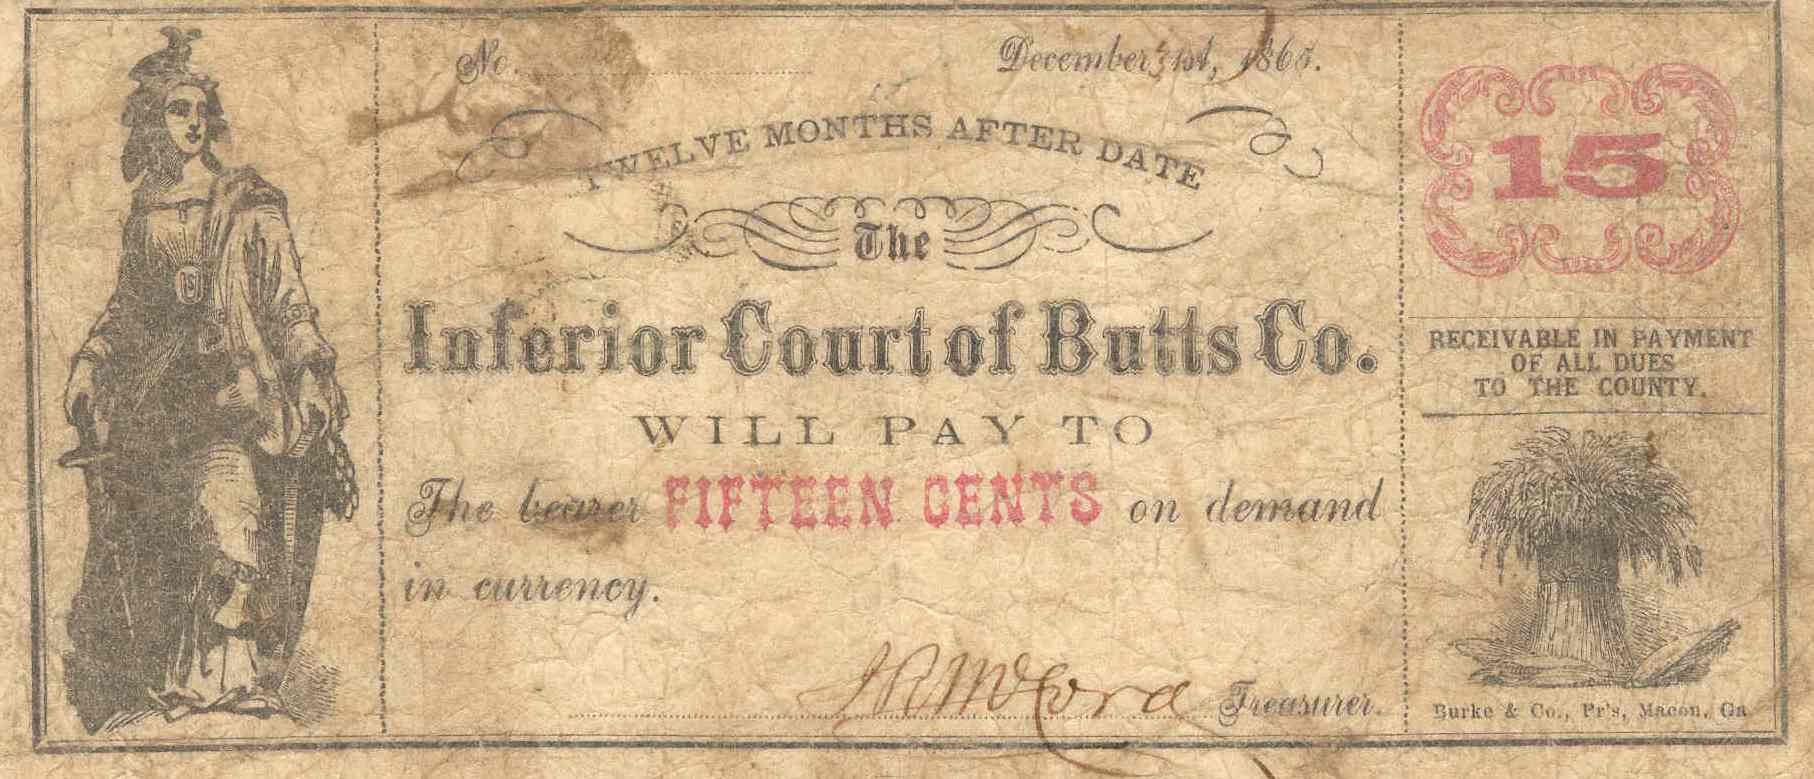 No.
December 31st, 1865.
TWELVE MONTHS AFTER DATE
The
Inferior Court of Butts Co.
WILL PAY TO
The bearer FIFTEEN CENTS on demand
in currency.
J R McCord Treasurer.
15
RECEIVABLE IN PAYMENT
OF ALL DUES
TO THE COUNTY.
Burke & Co., Pr's, Macon, Ga
US